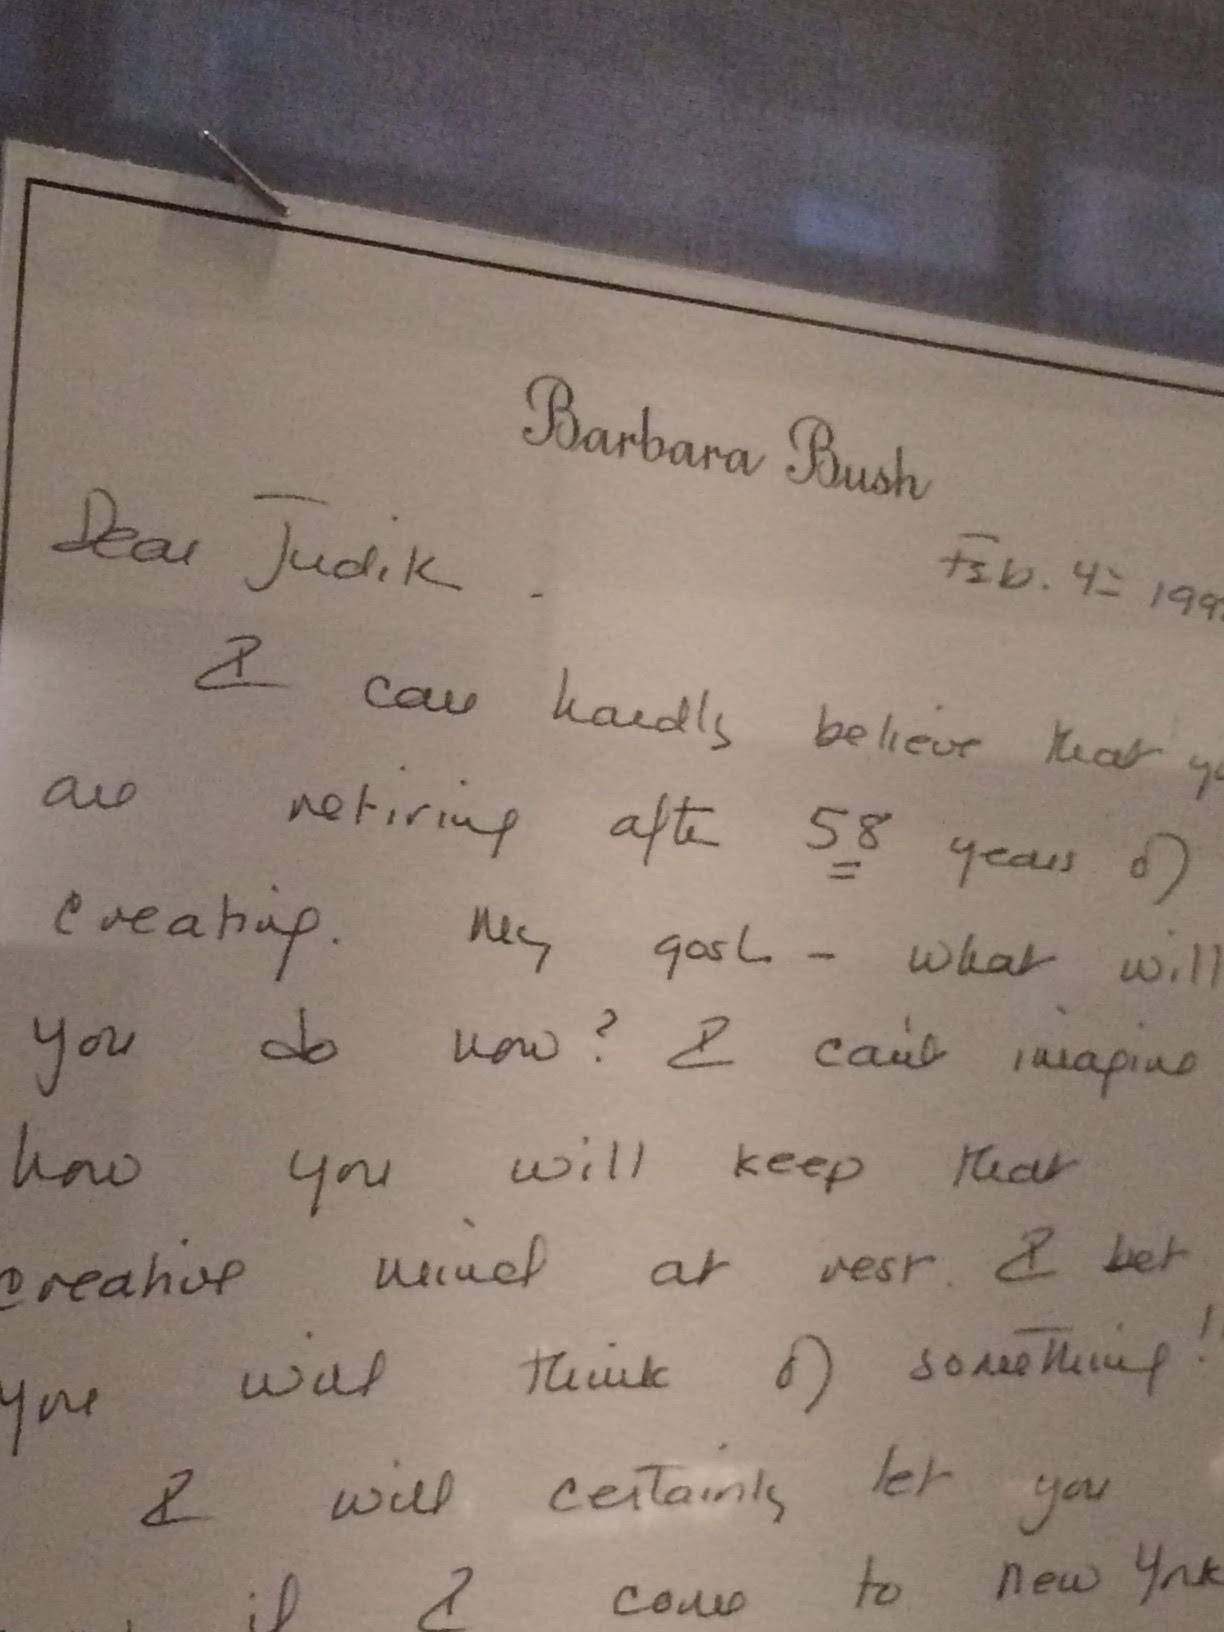 Barbara Bush
Dear Judik. Feb. 4= 199
I can hardly believe that
are retiring after 58 years of
creating. My gosh - what will
you do now? I can't imagine
how you will keep that
creative mind at rest. I bet
you will think of something!
I will certainly let you
if I come to New York